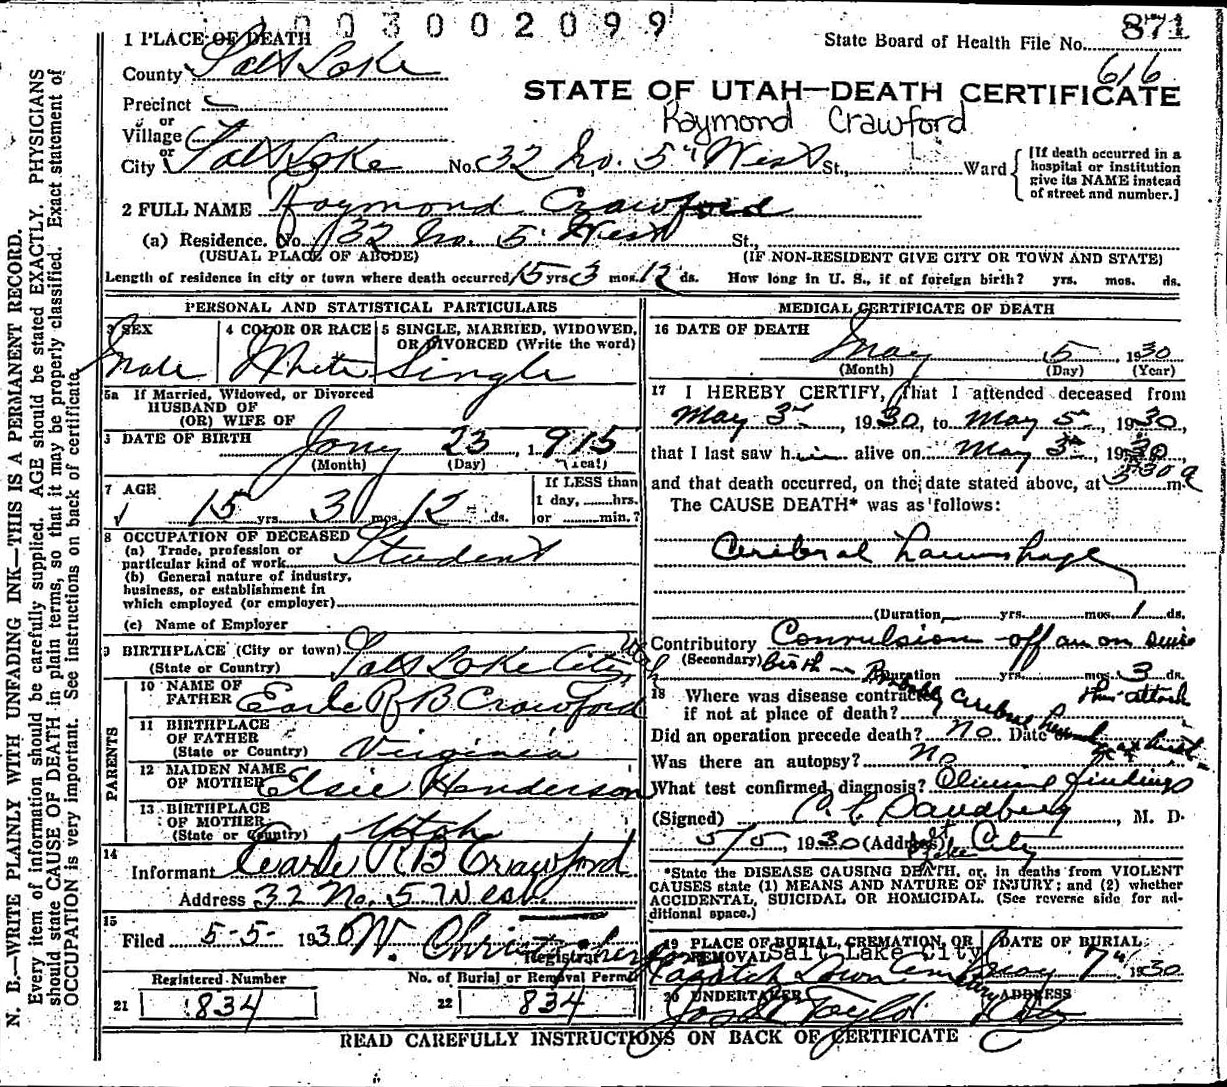 003002099
871
1 PLACE OF DEATH
State Board of Health File No.
County Salt Lake
616
STATE OF UTAH—DEATH CERTIFICATE
Precinct
or
Village
Raymond Crawford
or
City Salt Lake No. 32 No. 5" West St., Ward
[If death occurred in a
hospital or institution
give its NAME instead
of street and number.]
2 FULL NAME Raymond Crawford
(a) Residence. No. 32 No. 5" West St.,
(USUAL PLACE OF ABODE) (IF NON-RESIDENT GIVE CITY OR TOWN AND STATE)
Length of residence in city or town where death occurred 15 yrs 3 mos. 12 ds. How long in U. S., if of foreign birth? yrs. mos. ds.
PERSONAL AND STATISTICAL PARTICULARS
3 SEX
Male
4 COLOR OR RACE
White
5 SINGLE, MARRIED, WIDOWED,
OR DIVORCED (Write the word)
Single
5a If Married, Widowed, or Divorced
HUSBAND OF
(OR) WIFE OF
DATE OF BIRTH
Jany 23, 1915
(Month) (Day) (Year)
7 AGE
15 yrs. 3 mos. 12 ds.
If LESS than
1 day, hrs.
or min.?
8 OCCUPATION OF DECEASED
(a) Trade, profession or
particular kind of work Student
(b) General nature of industry,
business, or establishment in
which employed (or employer)
(c) Name of Employer
9 BIRTHPLACE (City or town) Salt Lake City, Utah
(State or Country)
PARENTS
10 NAME OF
FATHER Earle R B Crawford
11 BIRTHPLACE
OF FATHER
(State or Country) Virginia
12 MAIDEN NAME
OF MOTHER Elsie Henderson
13 BIRTHPLACE
OF MOTHER
(State or Country) Utah
14
Informant Earle R B Crawford
Address 32 No. 5 West
15
Filed 5-5- 1930 W. Christopherson
Registrar
Registered Number
21 834
No. of Burial or Removal Permit
22 834
MEDICAL CERTIFICATE OF DEATH
16 DATE OF DEATH
May 5 1930
(Month) (Day) (Year)
17 I HEREBY CERTIFY, That I attended deceased from
May 3, 1930, to May 5, 1930,
that I last saw him alive on May 3, 1930
and that death occurred, on the date stated above, at 530 a m
The CAUSE DEATH* was as follows:
Cerebral haemorhage
(Duration yrs. mos. 1 ds.
Contributory Convulsion off an on since
(Secondary) birth — Duration yrs. mos. 3 ds.
Probably Cerebral this attack
18 Where was disease contracted
if not at place of death?
at birth
Did an operation precede death? No Date of
Was there an autopsy? No
What test confirmed diagnosis? Clinical findings
(Signed) C. L. Sandberg, M. D.
5/5, 1930 (Address) St Lake City
*State the DISEASE CAUSING DEATH, or, in deaths from VIOLENT
CAUSES state (1) MEANS AND NATURE OF INJURY; and (2) whether
ACCIDENTAL, SUICIDAL OR HOMICIDAL. (See reverse side for ad-
ditional space.)
19 PLACE OF BURIAL, CREMATION, OR
REMOVAL Salt Lake City
Wasatch Lawn Cemetery
DATE OF BURIAL
May 7" 1930
20 UNDERTAKER
Taylor
ADDRESS
City
READ CAREFULLY INSTRUCTIONS ON BACK OF CERTIFICATE
N. B.—WRITE PLAINLY WITH UNFADING INK—THIS IS A PERMANENT RECORD.
Every item of information should be carefully supplied. AGE should be stated EXACTLY. PHYSICIANS
should state CAUSE OF DEATH in plain terms, so that it may be properly classified. Exact statement of
OCCUPATION is very important. See instructions on back of certificate.